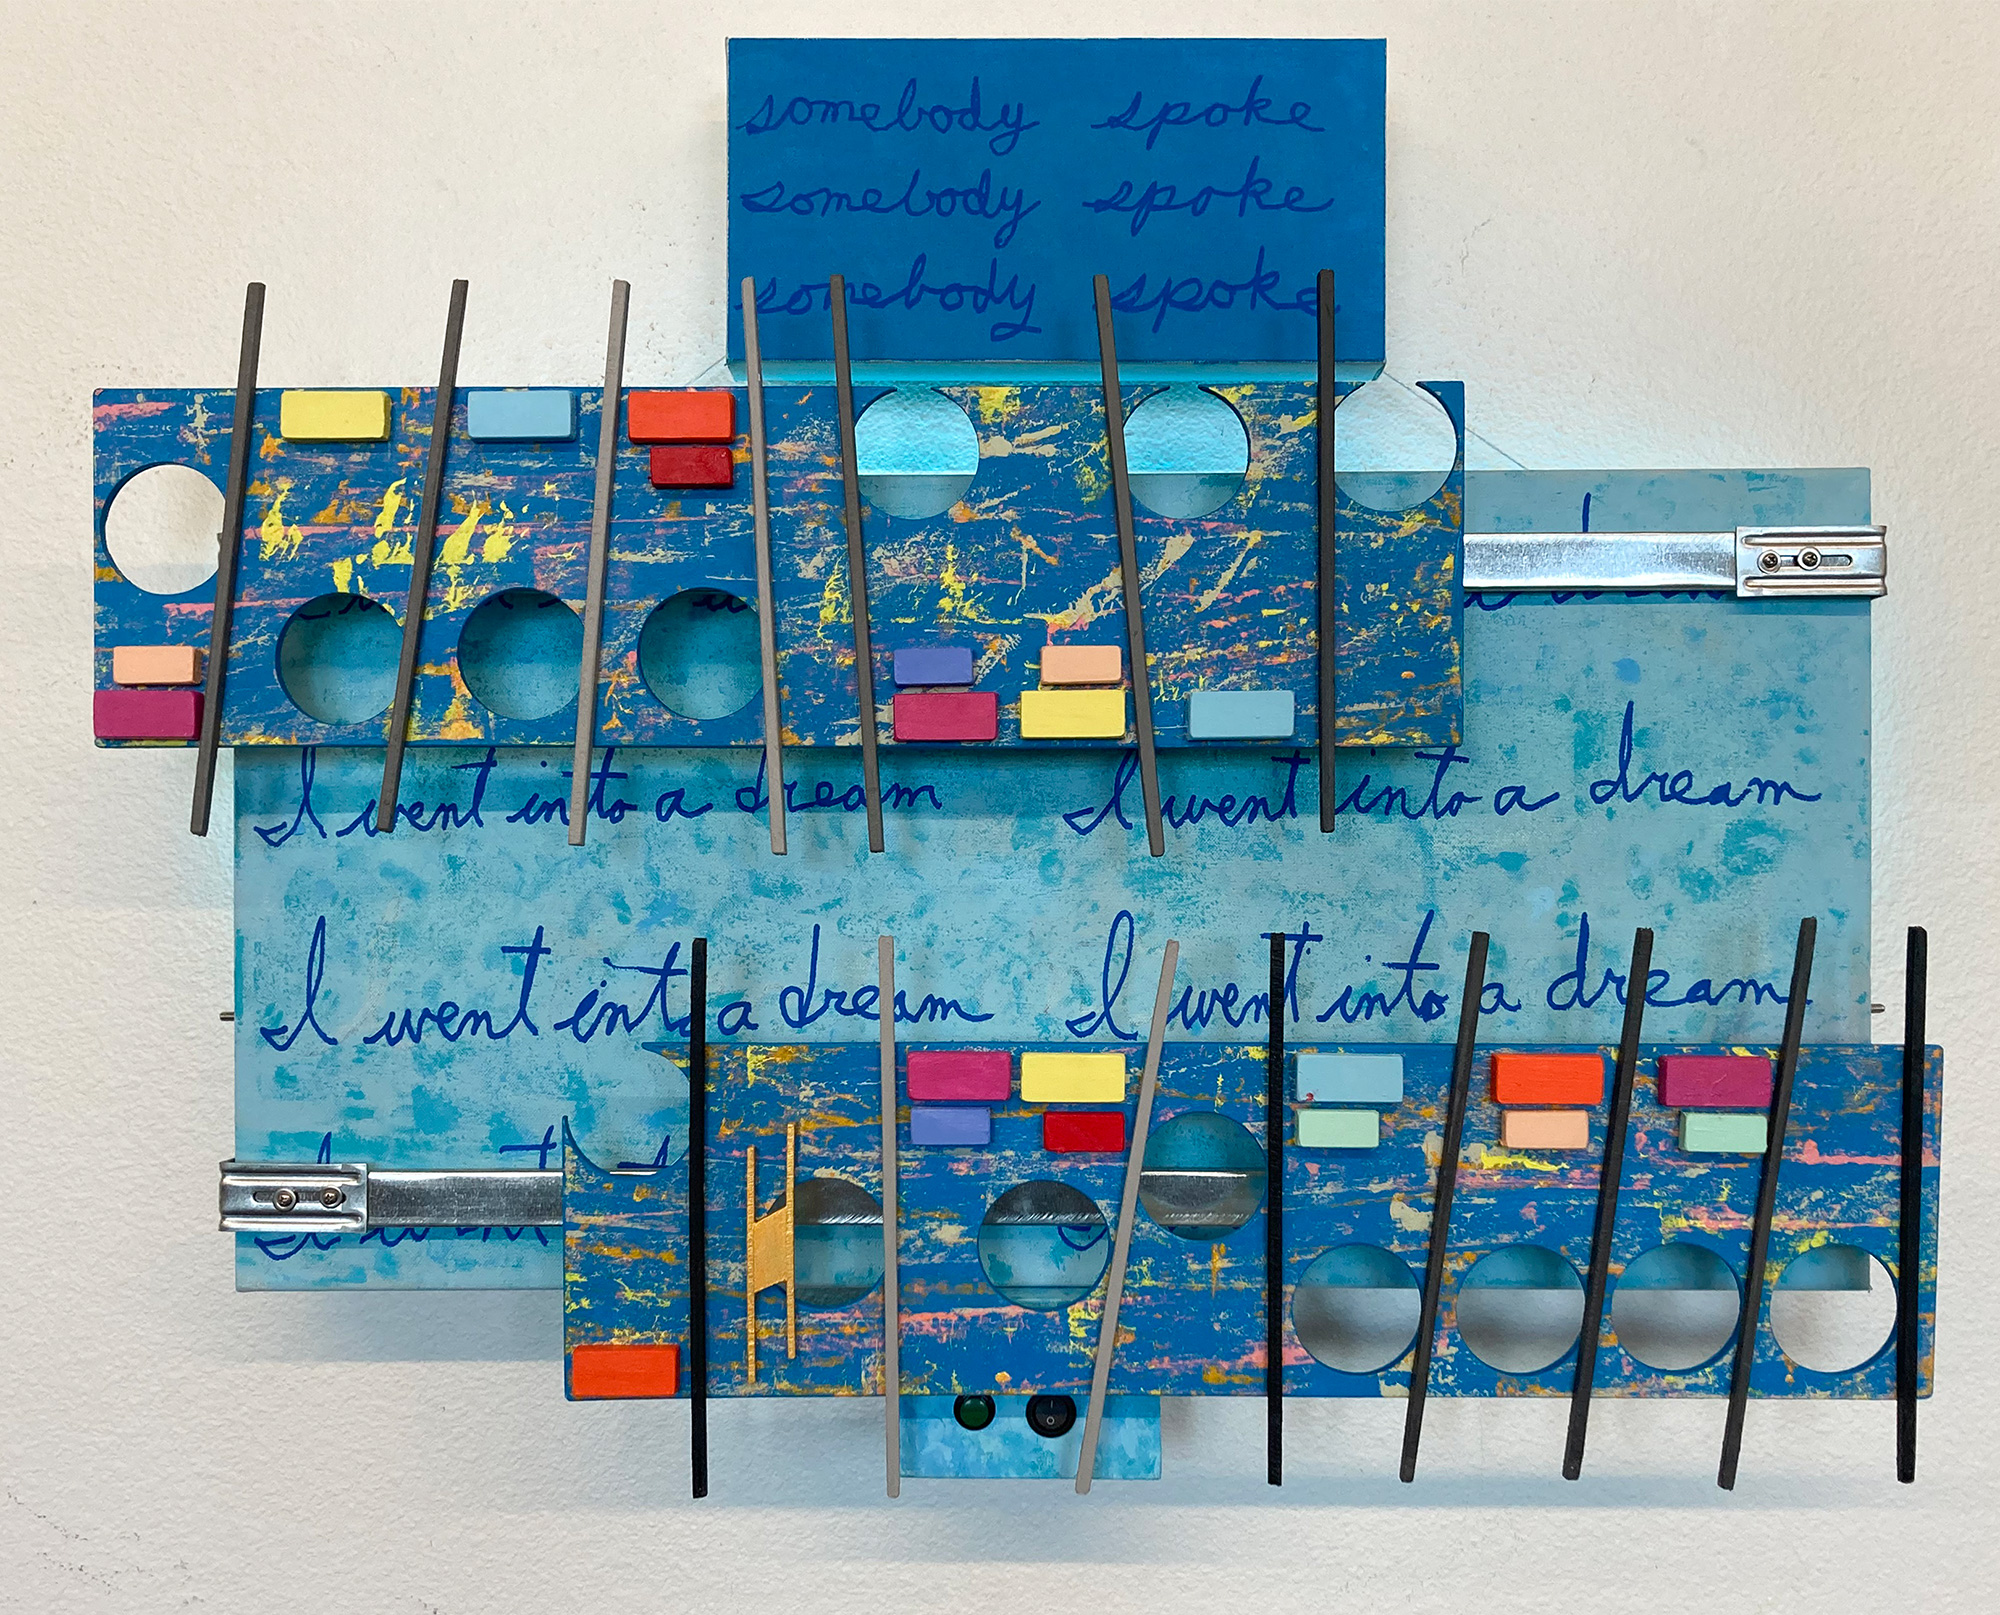 somebody spoke
somebody spoke
somebody spoke
I went into a dream I went into a dream
I went into a dream I went into a dream